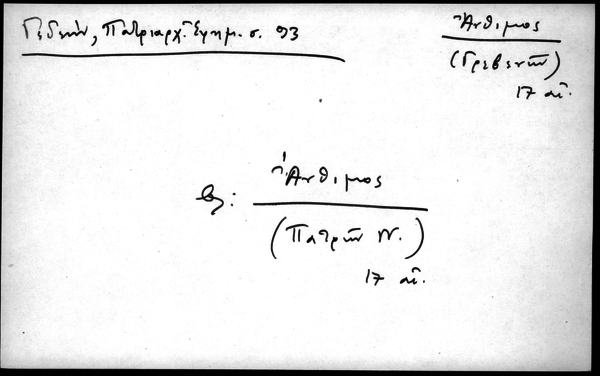 Γεδεών, Πατριαρχ. Ἐφημ. σ. 93
Ἄνθιμος
(Γρεβενῶν)
17 αἰ.
βλ:
Ἄνθιμος
(Πατρῶν Ν.)
17 αἰ.